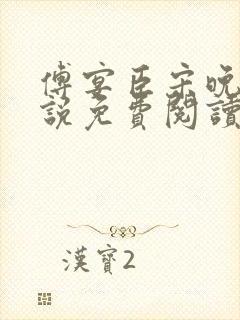 傅宴臣宋晚
說免費閱讀
漢寶2